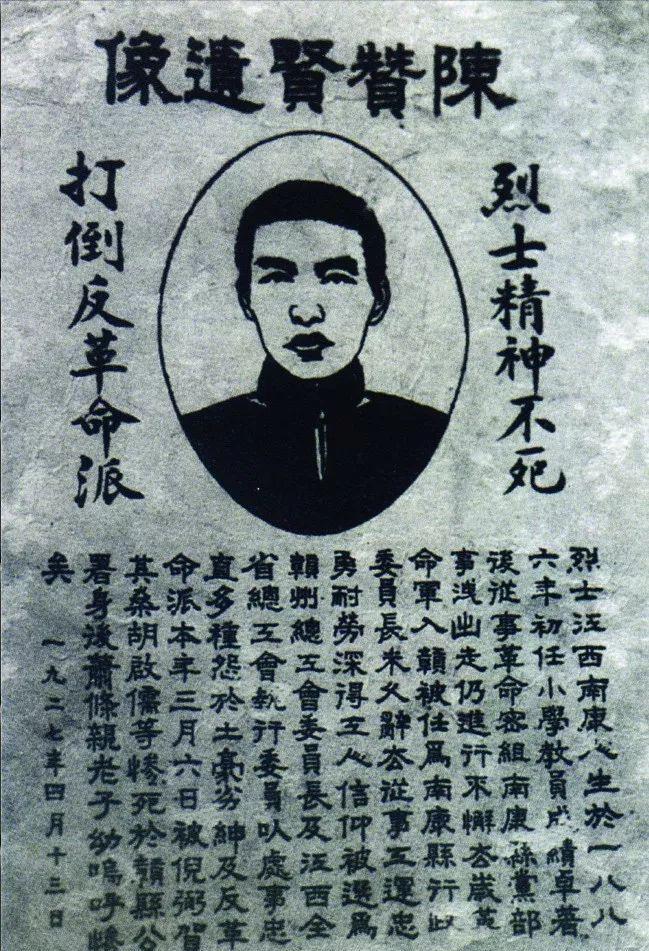 陳贊賢遺像
烈士精神不死
打倒反革命派
烈士江西南康人生於一八八
六年初任小學教員成績卓著
後從事革命密組南康縣黨部
事洩出走仍進行不懈去歲革
命軍入贛被任為南康縣行政
委員長未久辭去從事工運忠
勇耐勞深得工人信仰被選為
贛州總工會委員長及江西全
省總工會執行委員以處事忠
直多種怨於土豪劣紳及反革
命派本年三月六日被倪弼賀
其桑胡啟儒等慘死於贛縣公
署身後蕭條親老子幼嗚呼慘
矣 一九二七年四月十三日